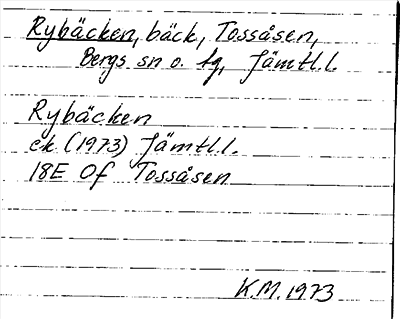 Rybäcken, bäck, Tossåsen,
Bergs sn o. tg, Jämtl.l.
Rybäcken
ek (1973) Jämtl.l.
18E 0f Tossåsen
K.M. 1973